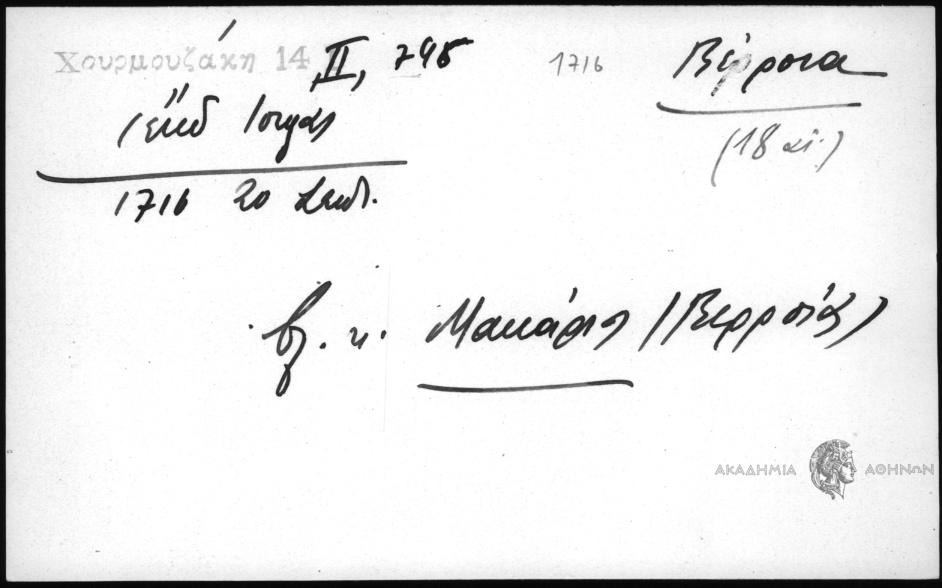 Χουρμουζάκη 14, II, 745
1716
Βέρροια
(18 αι.)
1716 20 Σεπτ.
βλ. κ. Μακάριος (Βερροίας)
ΑΚΑΔΗΜΙΑ ΑΘΗΝΩΝ